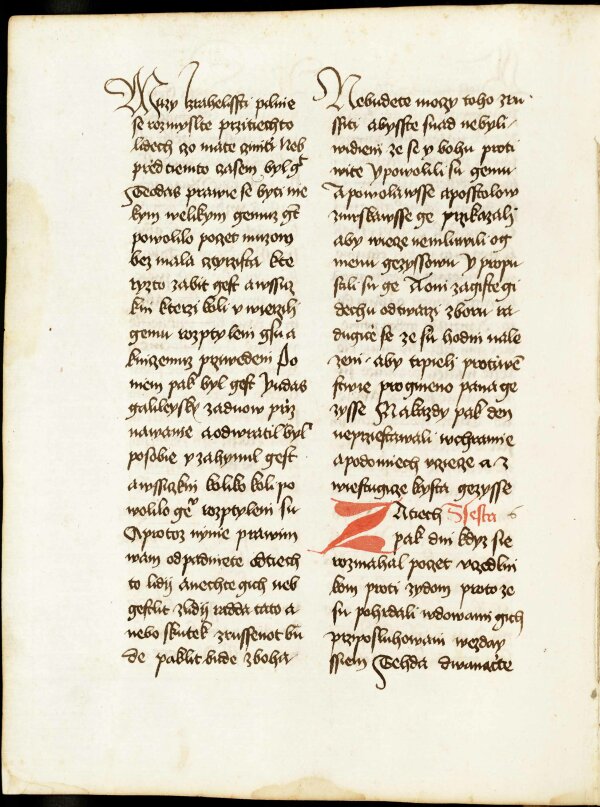 Muzy Izrahelssti pilnie
se rozmyslte przitiechto
lidech czo mate cziniti Neb
przed tiemto czasem byl gest
Teodas prawie se byti nie
kym welikym gemuz gest
powolilo poczet muzow
bez mala cztyrzista kte
ryzto zabit gest a wssicz
kni kterzi koli y wierzili
gemu rozptyleni gsu a
kniczemuz prziwedeni Po
niem pak byl gest Yudas
galileysky zadnow przi
znawanie a odwratil byl
posobie y zahynul gest
a wssiczkni koliko koli po
wolilo gemu rozptyleni su
A protoz nynie prawim
wam odpadniete odtiech
to lidij a nechte gich neb
gestlit zlidij radda tato a
nebo skutek zrussenot bu
de paklit bude zboha
Nebudete moczy toho zru
ssiti abysste snad nebyli
widieni ze se y bohu proti
wite Y powolili su gemu
A powolawsse aposstolow
zmrskawsse ge przikazali
aby wiecze nemluwili og
menu gezyssowu Y propu
stili su ge A oni zagiste gi
dechu od twarzi zboru ra
dugicze se ze su hodni nale
zeni aby trpieli protiwen
stwie pro gmeno pana ge
zysse Na kazdy pak den
neprzestawali wchramie
a podomiech vczicze a z
wiestugicze krysta gezysse
Zatiech Ssesta 6
pak dni kdyz sie
rozmahal poczet vczedlni
kom proti zydom proto ze
su pohrdali wdowami gich
przyposluhowani wezday
ssiem Tehda dwanaczte